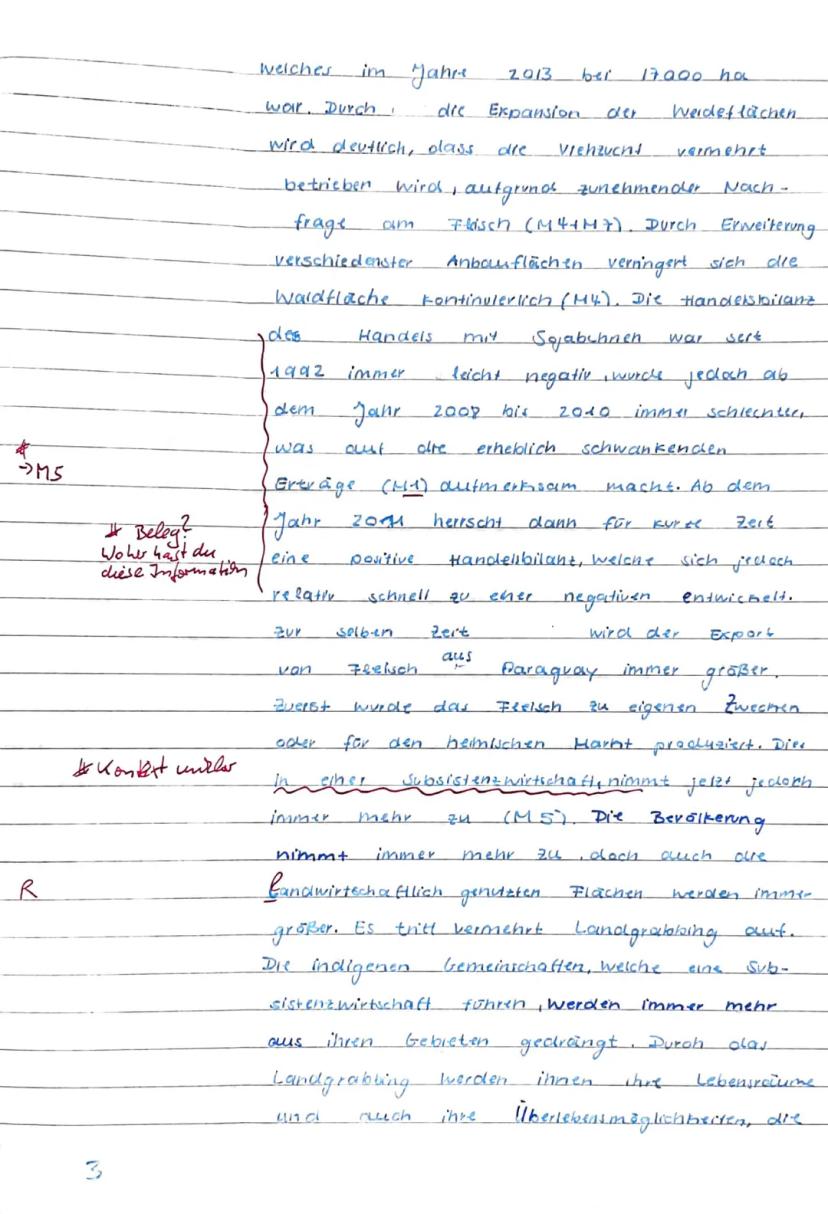 welches im Jahre 2013 bei 17000 ha
war. Durch die Expansion der Weideflächen
wird deutlich, dass die Viehzucht vermehrt
betrieben wird, aufgrund zunehmender Nach-
frage am Fleisch (M4+M7). Durch Erweiterung
verschiedenster Anbauflächen verringert sich die
Waldfläche kontinuierlich (M4). Die Handelsbilanz
des Handels mit Sojabohnen war seit
1992 immer leicht negativ, wurde jedoch ab
dem Jahr 2008 bis 2010 immer schlechter,
was auf die erheblich schwankenden
*
→M5
Erträge (M1) aufmerksam macht. Ab dem
Jahr 2011 herrscht dann für kurze Zeit
* Beleg?
Woher hast du
diese Information
eine positive Handelsbilanz, welche sich jedoch
relativ schnell zu einer negativen entwickelt.
Zur selben Zeit wird der Export
von Fleisch aus Paraguay immer größer.
Zuerst wurde das Fleisch zu eigenen Zwecken
oder für den heimischen Markt produziert. Dies
* Kontext unklar
in einer Subsistenzwirtschaft, nimmt jetzt jedoch
immer mehr zu (M5). Die Bevölkerung
nimmt immer mehr zu, doch auch die
R
Landwirtschaftlich genutzten Flächen werden immer
größer. Es tritt vermehrt Landgrabbing auf.
Die indigenen Gemeinschaften, welche eine Sub-
sistenzwirtschaft führen, werden immer mehr
aus ihren Gebieten gedrängt. Durch das
Landgrabbing werden ihnen ihre Lebensräume
und auch ihre Überlebensmöglichkeiten, die
3